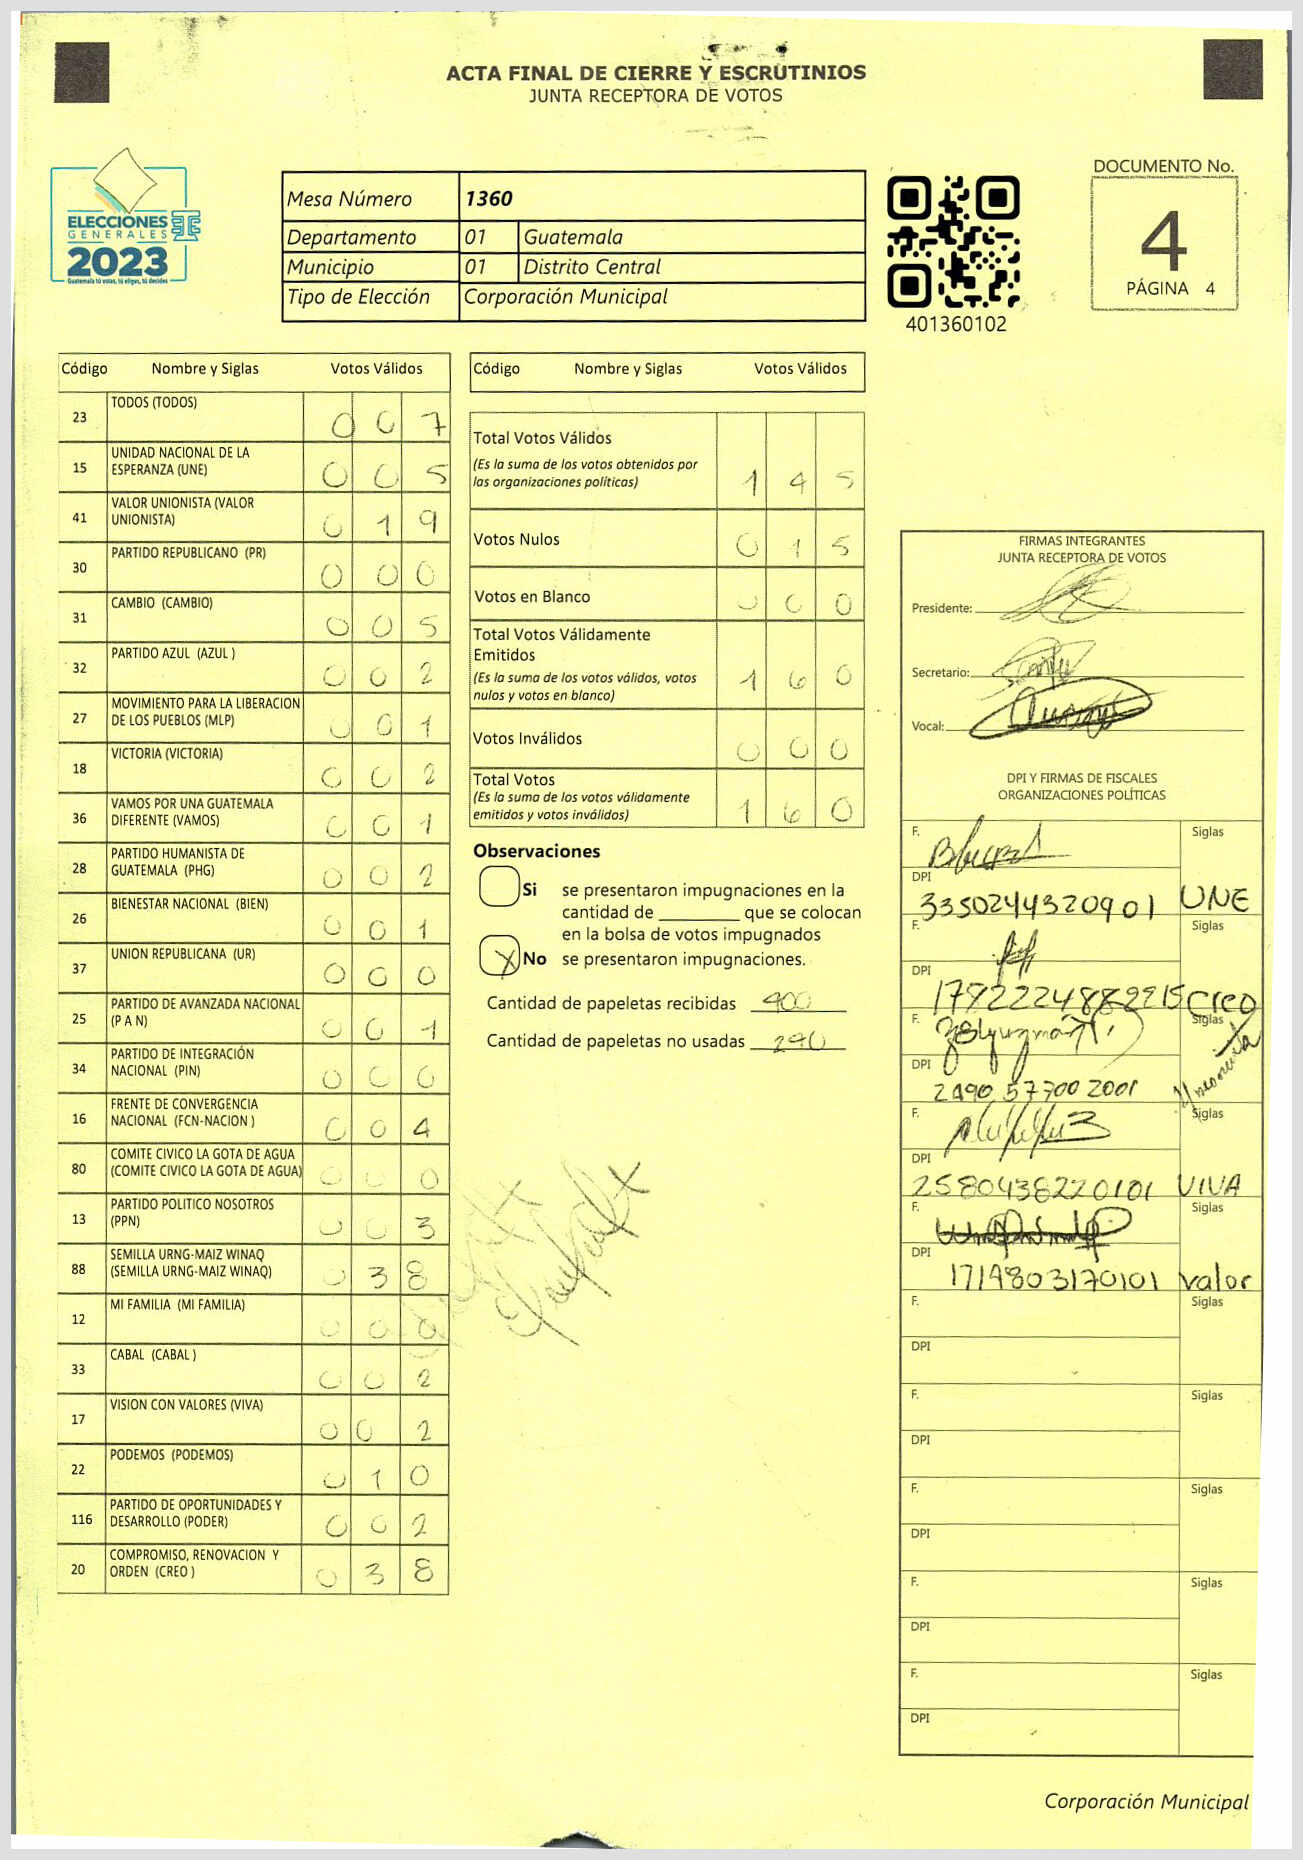 ACTA FINAL DE CIERRE Y ESCRUTINIOS
JUNTA RECEPTORA DE VOTOS
ELECCIONES
GENERALES
2023
Guatemala tú votas, tú eliges, tú decides
Mesa Número 1360
Departamento 01 Guatemala
Municipio 01 Distrito Central
Tipo de Elección Corporación Municipal
401360102
DOCUMENTO No.
4
PÁGINA 4
Código Nombre y Siglas Votos Válidos
23 TODOS (TODOS) 0 0 7
15 UNIDAD NACIONAL DE LA
ESPERANZA (UNE) 0 0 5
41 VALOR UNIONISTA (VALOR
UNIONISTA) 0 1 9
30 PARTIDO REPUBLICANO (PR) 0 0 0
31 CAMBIO (CAMBIO) 0 0 5
32 PARTIDO AZUL (AZUL ) 0 0 2
27 MOVIMIENTO PARA LA LIBERACION
DE LOS PUEBLOS (MLP) 0 0 1
18 VICTORIA (VICTORIA) 0 0 2
36 VAMOS POR UNA GUATEMALA
DIFERENTE (VAMOS) 0 0 1
28 PARTIDO HUMANISTA DE
GUATEMALA (PHG) 0 0 2
26 BIENESTAR NACIONAL (BIEN) 0 0 1
37 UNION REPUBLICANA (UR) 0 0 0
25 PARTIDO DE AVANZADA NACIONAL
(P A N) 0 0 1
34 PARTIDO DE INTEGRACIÓN
NACIONAL (PIN) 0 0 0
16 FRENTE DE CONVERGENCIA
NACIONAL (FCN-NACION ) 0 0 4
80 COMITE CIVICO LA GOTA DE AGUA
(COMITE CIVICO LA GOTA DE AGUA) 0 0 0
13 PARTIDO POLITICO NOSOTROS
(PPN) 0 0 3
88 SEMILLA URNG-MAIZ WINAQ
(SEMILLA URNG-MAIZ WINAQ) 0 3 8
12 MI FAMILIA (MI FAMILIA) 0 0 0
33 CABAL (CABAL ) 0 0 2
17 VISION CON VALORES (VIVA) 0 0 2
22 PODEMOS (PODEMOS) 0 1 0
116 PARTIDO DE OPORTUNIDADES Y
DESARROLLO (PODER) 0 0 2
20 COMPROMISO, RENOVACION Y
ORDEN (CREO ) 0 3 8
Código Nombre y Siglas Votos Válidos
Total Votos Válidos
(Es la suma de los votos obtenidos por
las organizaciones políticas) 1 4 5
Votos Nulos 0 1 5
Votos en Blanco 0 0 0
Total Votos Válidamente
Emitidos
(Es la suma de los votos válidos, votos
nulos y votos en blanco) 1 6 0
Votos Inválidos 0 0 0
Total Votos
(Es la suma de los votos válidamente
emitidos y votos inválidos) 1 6 0
Observaciones
Si se presentaron impugnaciones en la
cantidad de ________ que se colocan
en la bolsa de votos impugnados
X No se presentaron impugnaciones.
Cantidad de papeletas recibidas 400
Cantidad de papeletas no usadas 240
FIRMAS INTEGRANTES
JUNTA RECEPTORA DE VOTOS
Presidente:
Secretario:
Vocal:
DPI Y FIRMAS DE FISCALES
ORGANIZACIONES POLÍTICAS
F. Siglas
DPI
3350244320901 UNE
F. Siglas
DPI
1792224882215 Creo
F. Siglas
DPI
2490 57700 2001
F. Siglas
DPI
2580438220101 VIVA
F. Siglas
DPI
1714803170101 valor
F. Siglas
DPI
F. Siglas
DPI
F. Siglas
DPI
F. Siglas
DPI
F. Siglas
DPI
Corporación Municipal